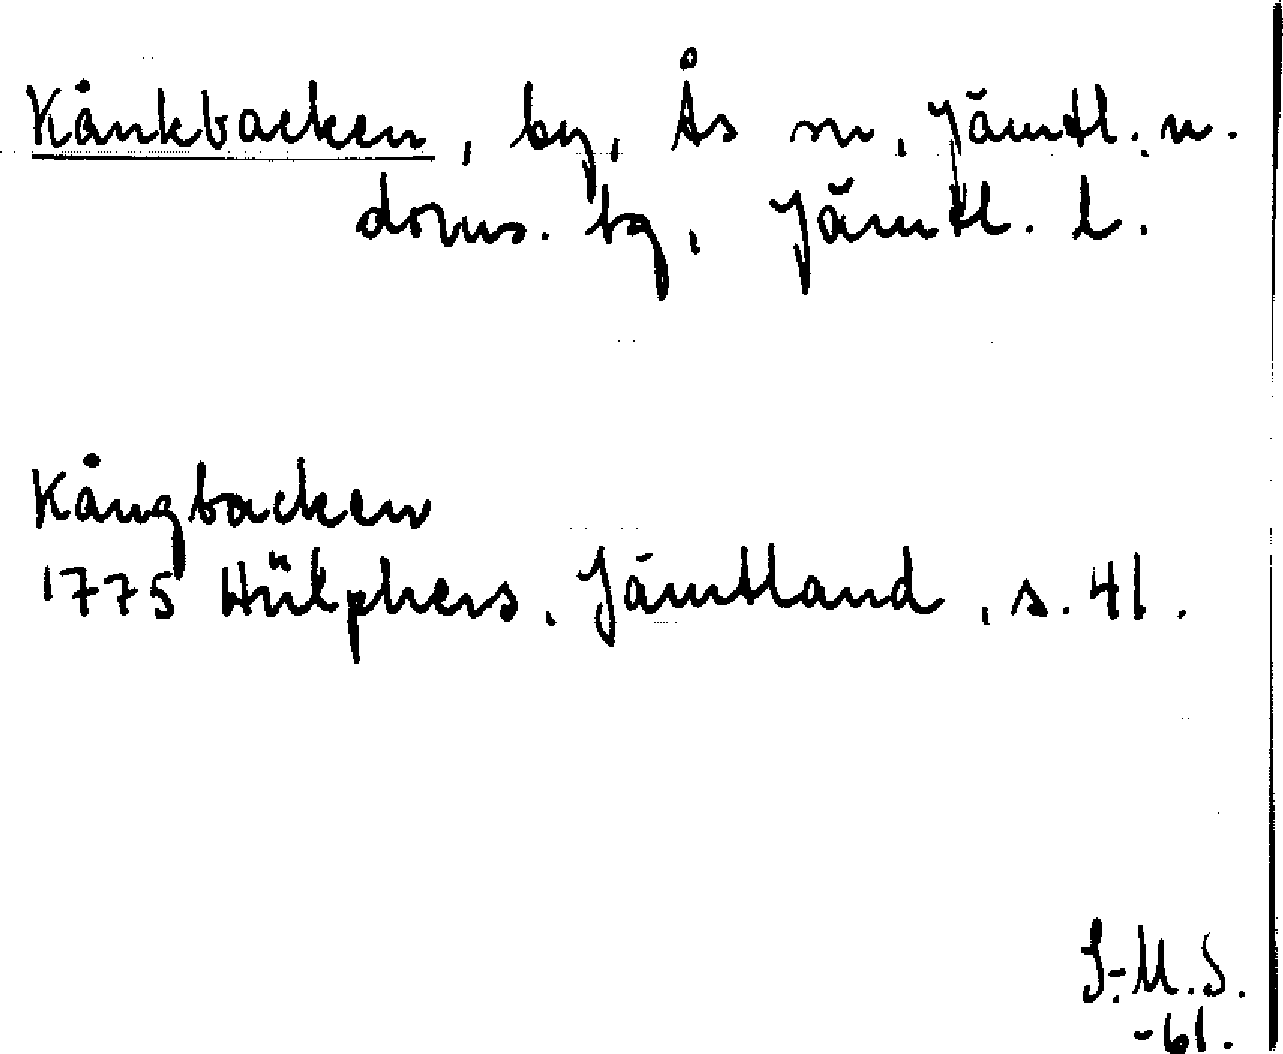 Kånkbacken, by, Ås sn, Jämtl. n.
doms. tg, Jämtl. l.
Kångbacken
1775 Hülphers. Jämtland, s. 41.
S.-M.S.
-61.